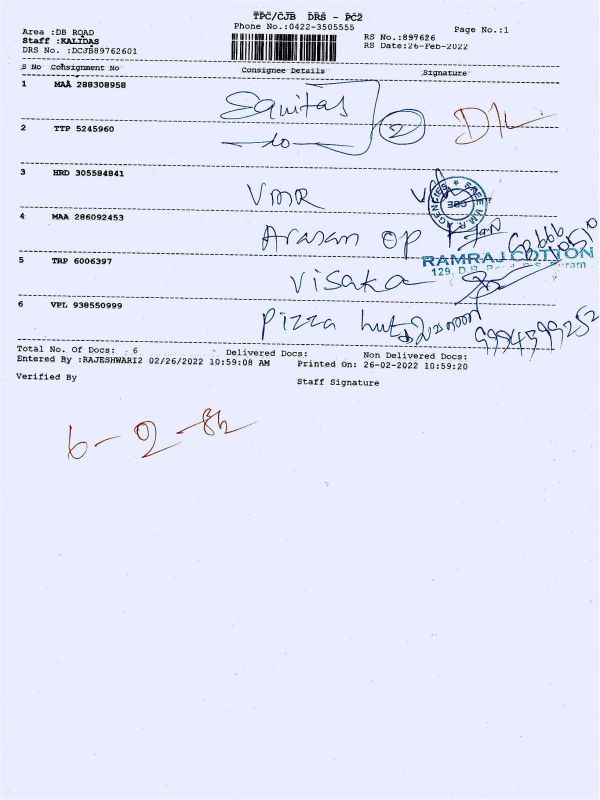 TPC/CJB DRS - PC2
Phone No.:0422-3505555
Page No.:1
Area :DB ROAD
Staff :KALIDAS
DRS No. :DCJB89762601
RS No.:897626
RS Date:26-Feb-2022
S No Consignment No Consignee Details Signature
1 MAA 288308958 Sanitas
2 TTP 5245960 -do- 2
3 HRD 305584841 VMR
SREE V.M.R. AGENCIES CBE
4 MAA 286092453 Arasan op
RAMRAJ COTTON
129, D.B. Road, R.S. Puram
5 TRP 6006397 Visaka
6 VPL 938550999 Pizza hut
Total No. Of Docs: 6 Delivered Docs: Non Delivered Docs:
Entered By :RAJESHWARI2 02/26/2022 10:59:08 AM Printed On: 26-02-2022 10:59:20
Verified By Staff Signature
6-2-